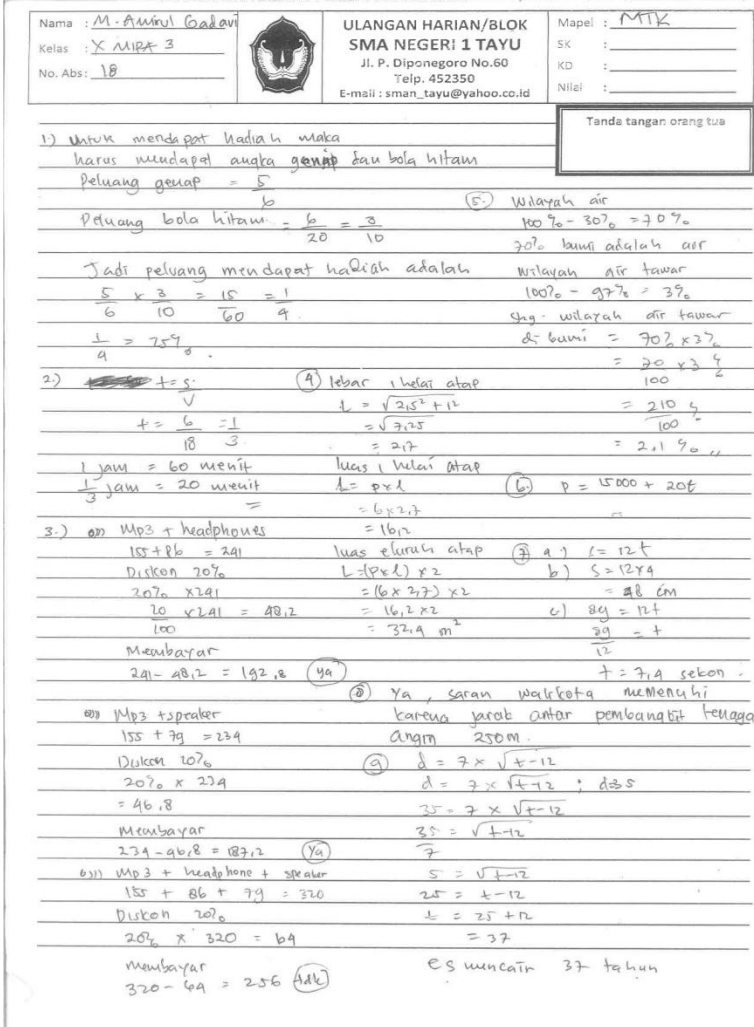 Nama : M. Amirul Gadavi
Kelas : X MIPA 3
No. Abs : 18
ULANGAN HARIAN/BLOK
SMA NEGERI 1 TAYU
Jl. P. Diponegoro No.60
Telp. 452350
E-mail : sman_tayu@yahoo.co.id
Mapel : MTK
SK :
KD :
Nilai :
Tanda tangan orang tua
1.) Untuk mendapat hadiah maka
harus mendapat angka genap dan bola hitam
Peluang genap = 5/6
Peluang bola hitam = 6/20 = 3/10
Jadi peluang mendapat hadiah adalah
5/6 x 3/10 = 15/60 = 1/4
1/4 = 25%.
2.) t = s/v
t = 6/18 = 1/3
1 jam = 60 menit
1/3 jam = 20 menit
3.) Mp3 + headphones
155 + 86 = 241
Diskon 20%
20% x 241
20/100 x 241 = 48,2
Membayar
241 - 48,2 = 192,8 ya
Mp3 + speaker
155 + 79 = 234
Diskon 20%
20% x 234
= 46,8
Membayar
234 - 46,8 = 187,2 Ya
Mp3 + headphone + speaker
155 + 86 + 79 = 320
Diskon 20%
20% x 320 = 64
membayar
320 - 64 = 256 tdk
4 lebar 1 helai atap
l = √2,5² + 12
= √7,25
= 2,7
luas 1 helai atap
L = p x l
= 6 x 2,7
= 16,2
luas eluruh atap
L = (p x l) x 2
= (6 x 2,7) x 2
= 16,2 x 2
= 32,4 m²
5. Wilayah air
100% - 30% = 70%
70% bumi adalah air
wilayah air tawar
100% - 97% = 3%
shg. wilayah air tawar
di bumi = 70% x 3%
= 70/100 x 3%
= 210/100 %
= 2,1 %
6. P = 15000 + 20t
7 a) s = 12t
b) S = 12 x 4
= 48 cm
c) 89 = 12t
89/12 = t
t = 7,4 sekon.
8 Ya, saran walikota memenuhi
karena jarak antar pembangkit tenaga
angin 250m.
9 d = 7 x √t-12
d = 7 x √t-12 ; d=35
35 = 7 x √t-12
35/7 = √t-12
5 = √t-12
25 = t-12
t = 25 + 12
= 37
es mencair 37 tahun